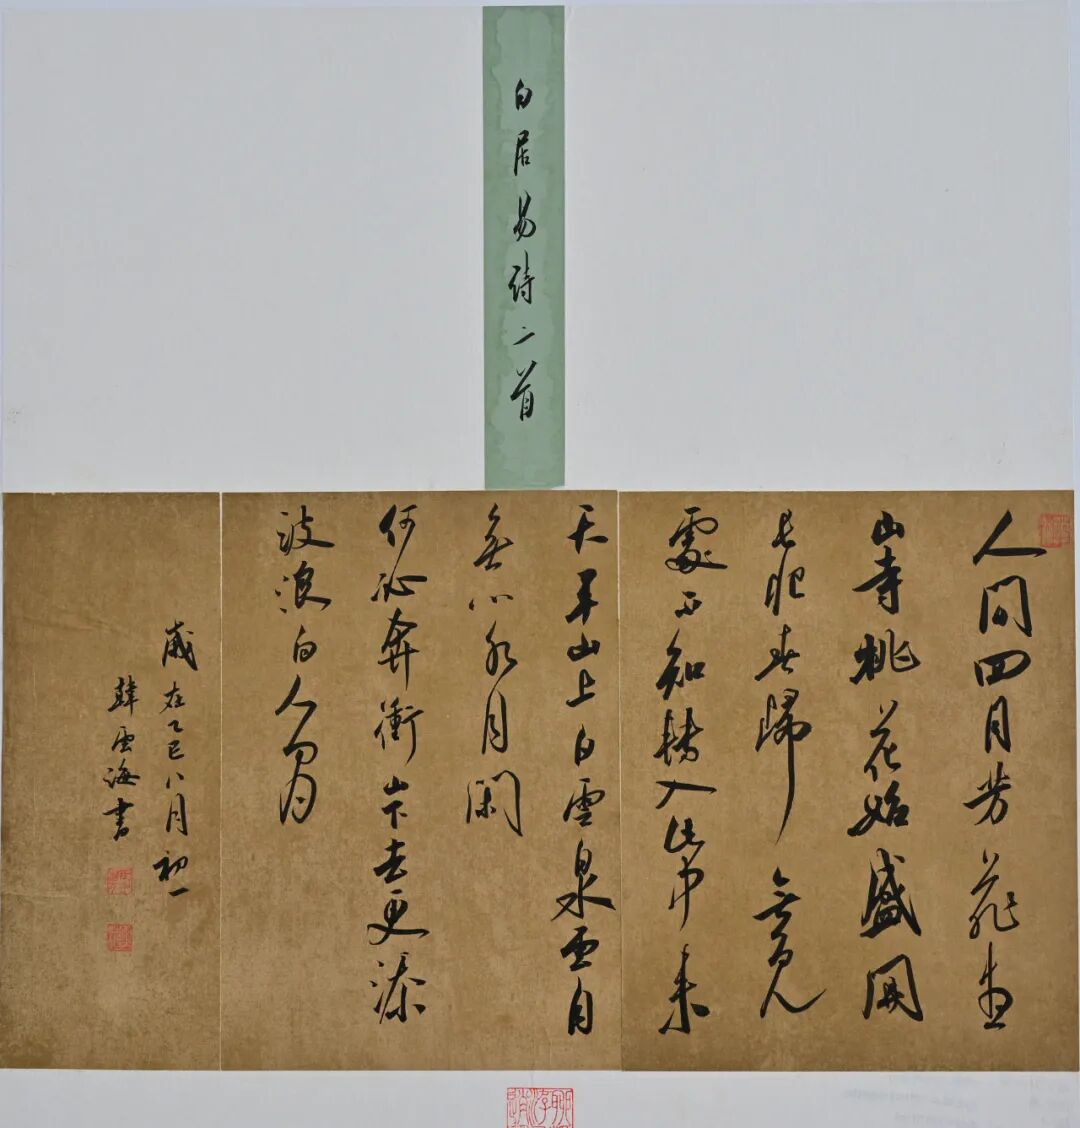 白居易詩二首
人間四月芳菲盡
山寺桃花始盛開
長恨春歸無覓
處不知轉入此中來
天平山上白雲泉雲自
無心水自閑
何必奔衝山下去更添
波浪向人間
歲在乙巳八月初一
韓雲海書